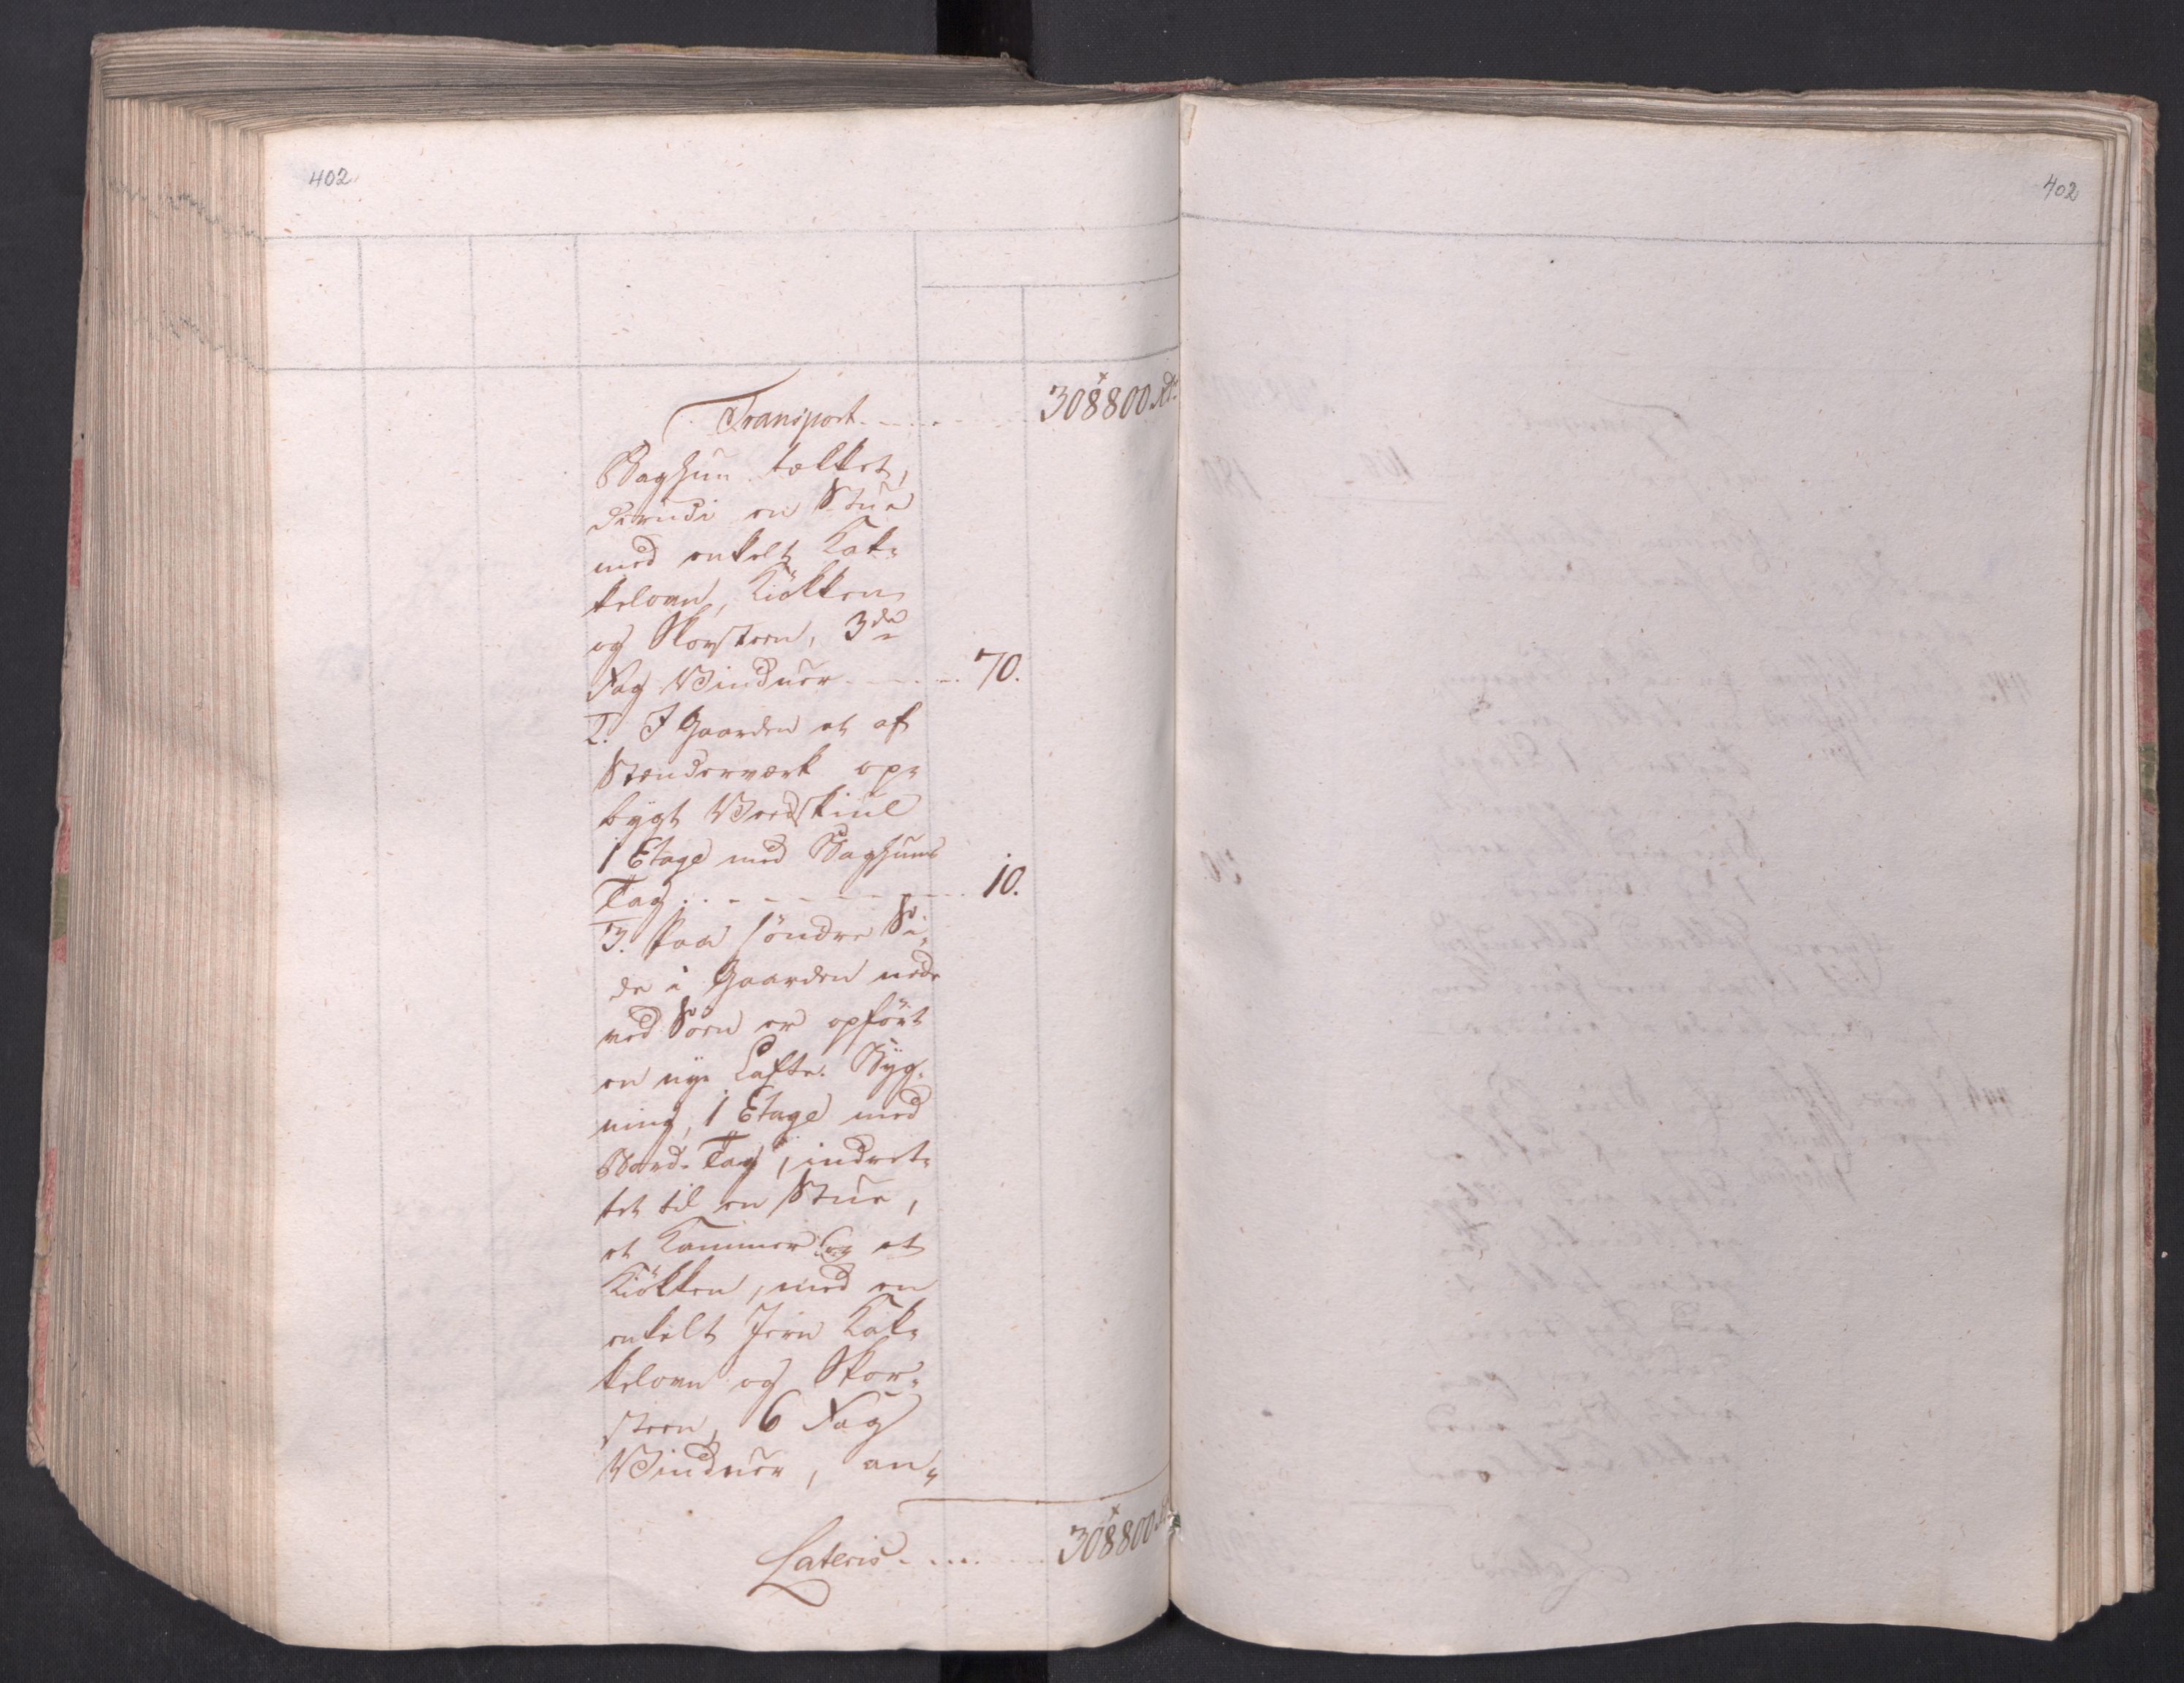 402.
402
Transport. - - - - - - 308800 Rdr.
Baghun tækket,
derudi en Stue
med enkelt Kak-
kelovn, Kiøkken
og Skorsteen, 3de
Fag Vinduer - - - - 70.
2. I Gaarden et af
Stænderværk op-
bygt Vedskiul
1 Etage med Baghuns
Tag . . - - - - - - - 10.
3. Paa søndre Si-
de i Gaarden nede
ved Søen er opført
en nye Lafte-Byg-
ning, 1 Etage med
Bord-Tag, indret-
tet til en Stue,
et Kammer og et
Kiøkken, med en
enkelt Jern Kak-
kelovn og Skor-
steen, 6 Fag
Vinduer, an-
Lateris - - - - - 308800